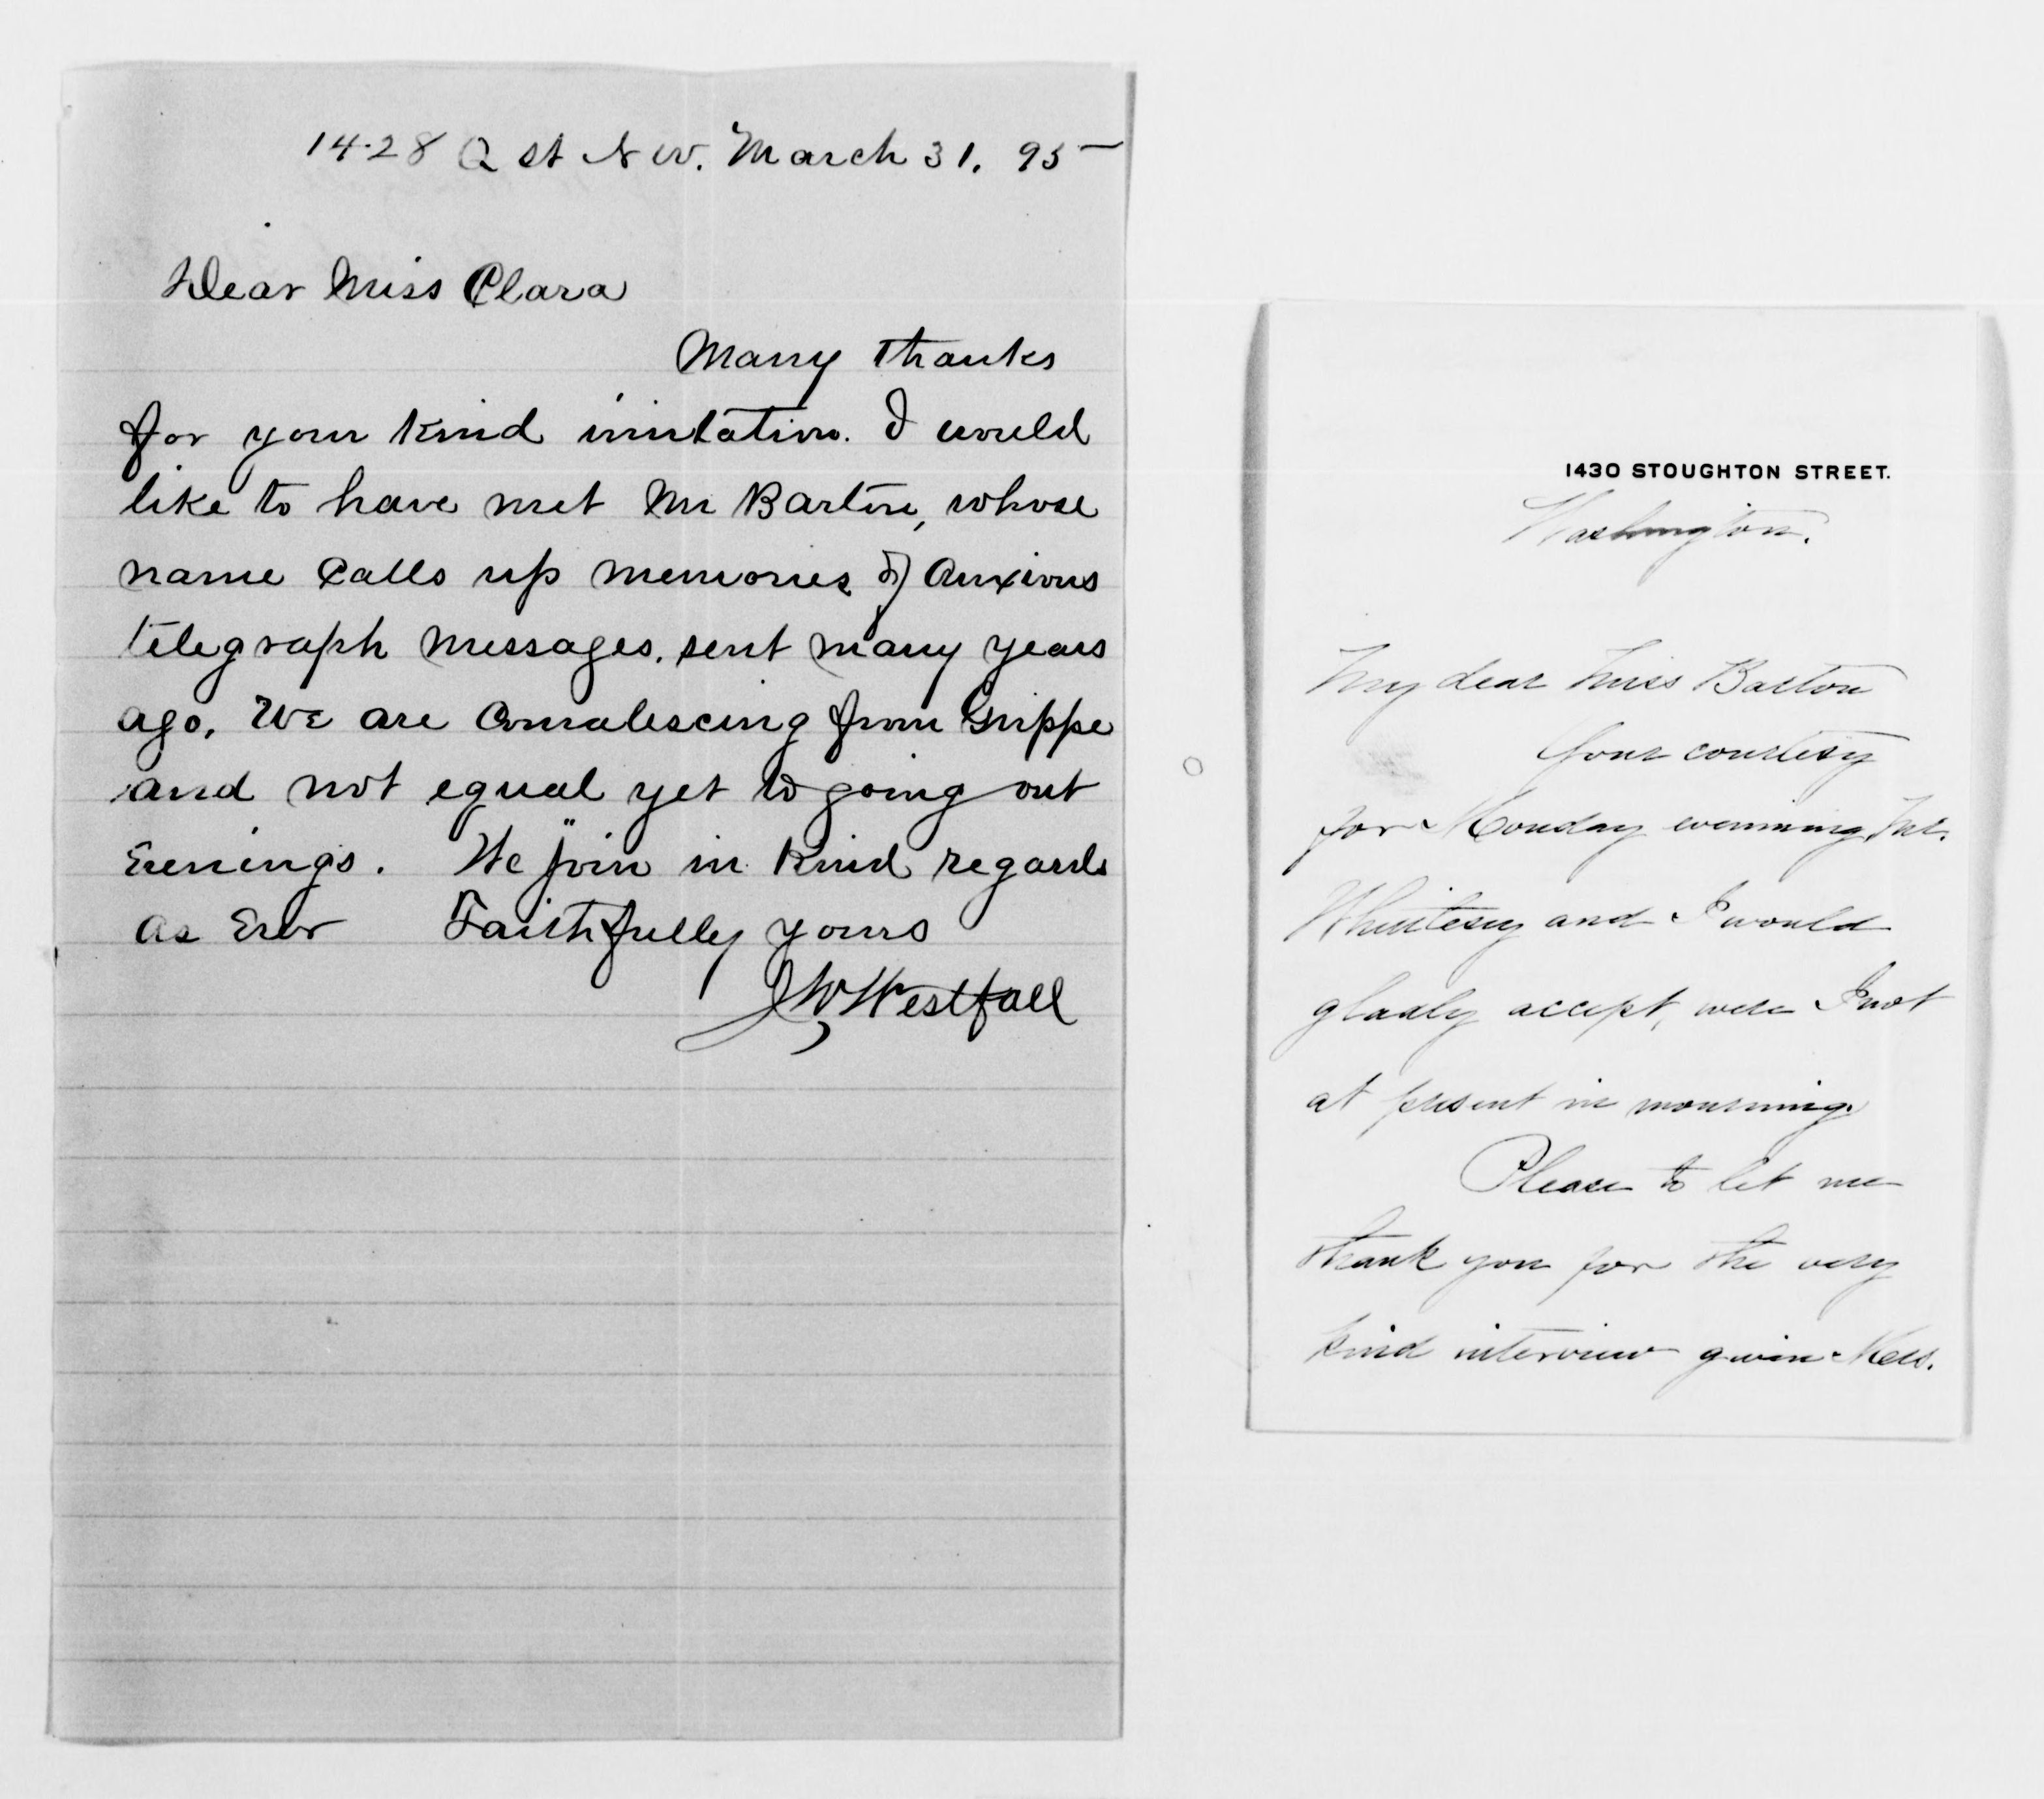 1428 Q st N W. March 31. 95
Dear Miss Clara
Many thanks
for your kind invitation. I would
like to have met Mr Barton, whose
name calls up memories of anxious
telegraph messages. sent many years
ago. We are convalescing from Grippe
and not equal yet to going out
Evenings. We join in kind regards
as Ever Faithfully yours
J W Westfall
1430 STOUGHTON STREET.
Washington.
My dear Miss Barton
Your courtesy
for Monday evening, Mr.
and I would
gladly accept, were I not
at present in mourning.
Please to let me
thank you for the very
kind interview given Mrs.